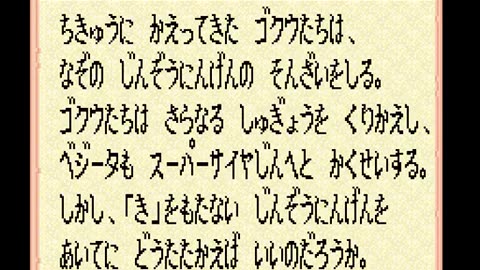 ちきゅうに かえってきた ゴクウたちは、
なぞの じんぞうにんげんの そんざいをしる。
ゴクウたちは さらなる しゅぎょうを くりかえし、
ベジータも スーパーサイヤじんへと かくせいする。
しかし、「き」をもたない じんぞうにんげんを
あいてに どうたたかえば いいのだろうか。